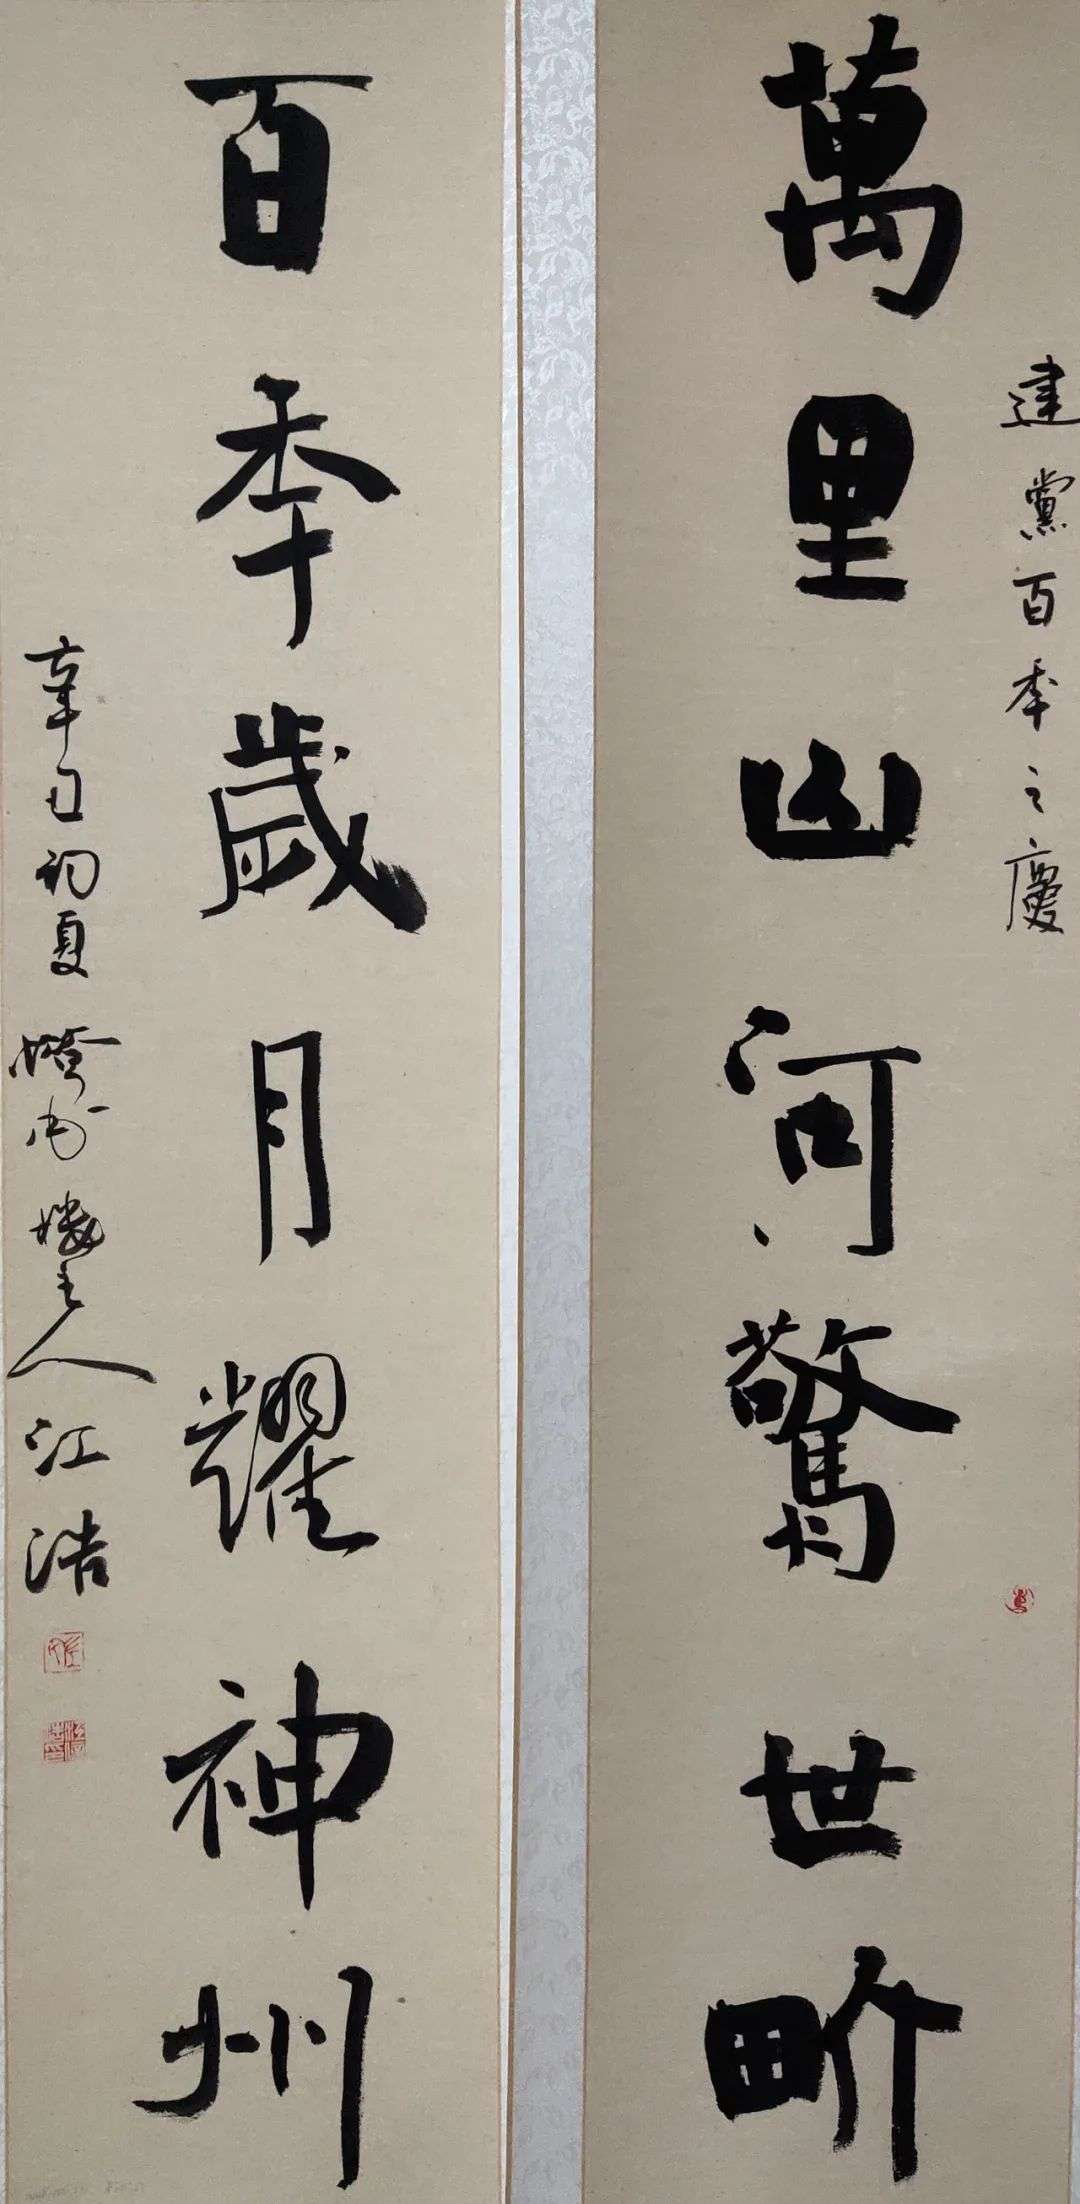 建黨百年之慶
萬里山河驚世畍
百年歲月耀神州
辛丑初夏
主人江浩